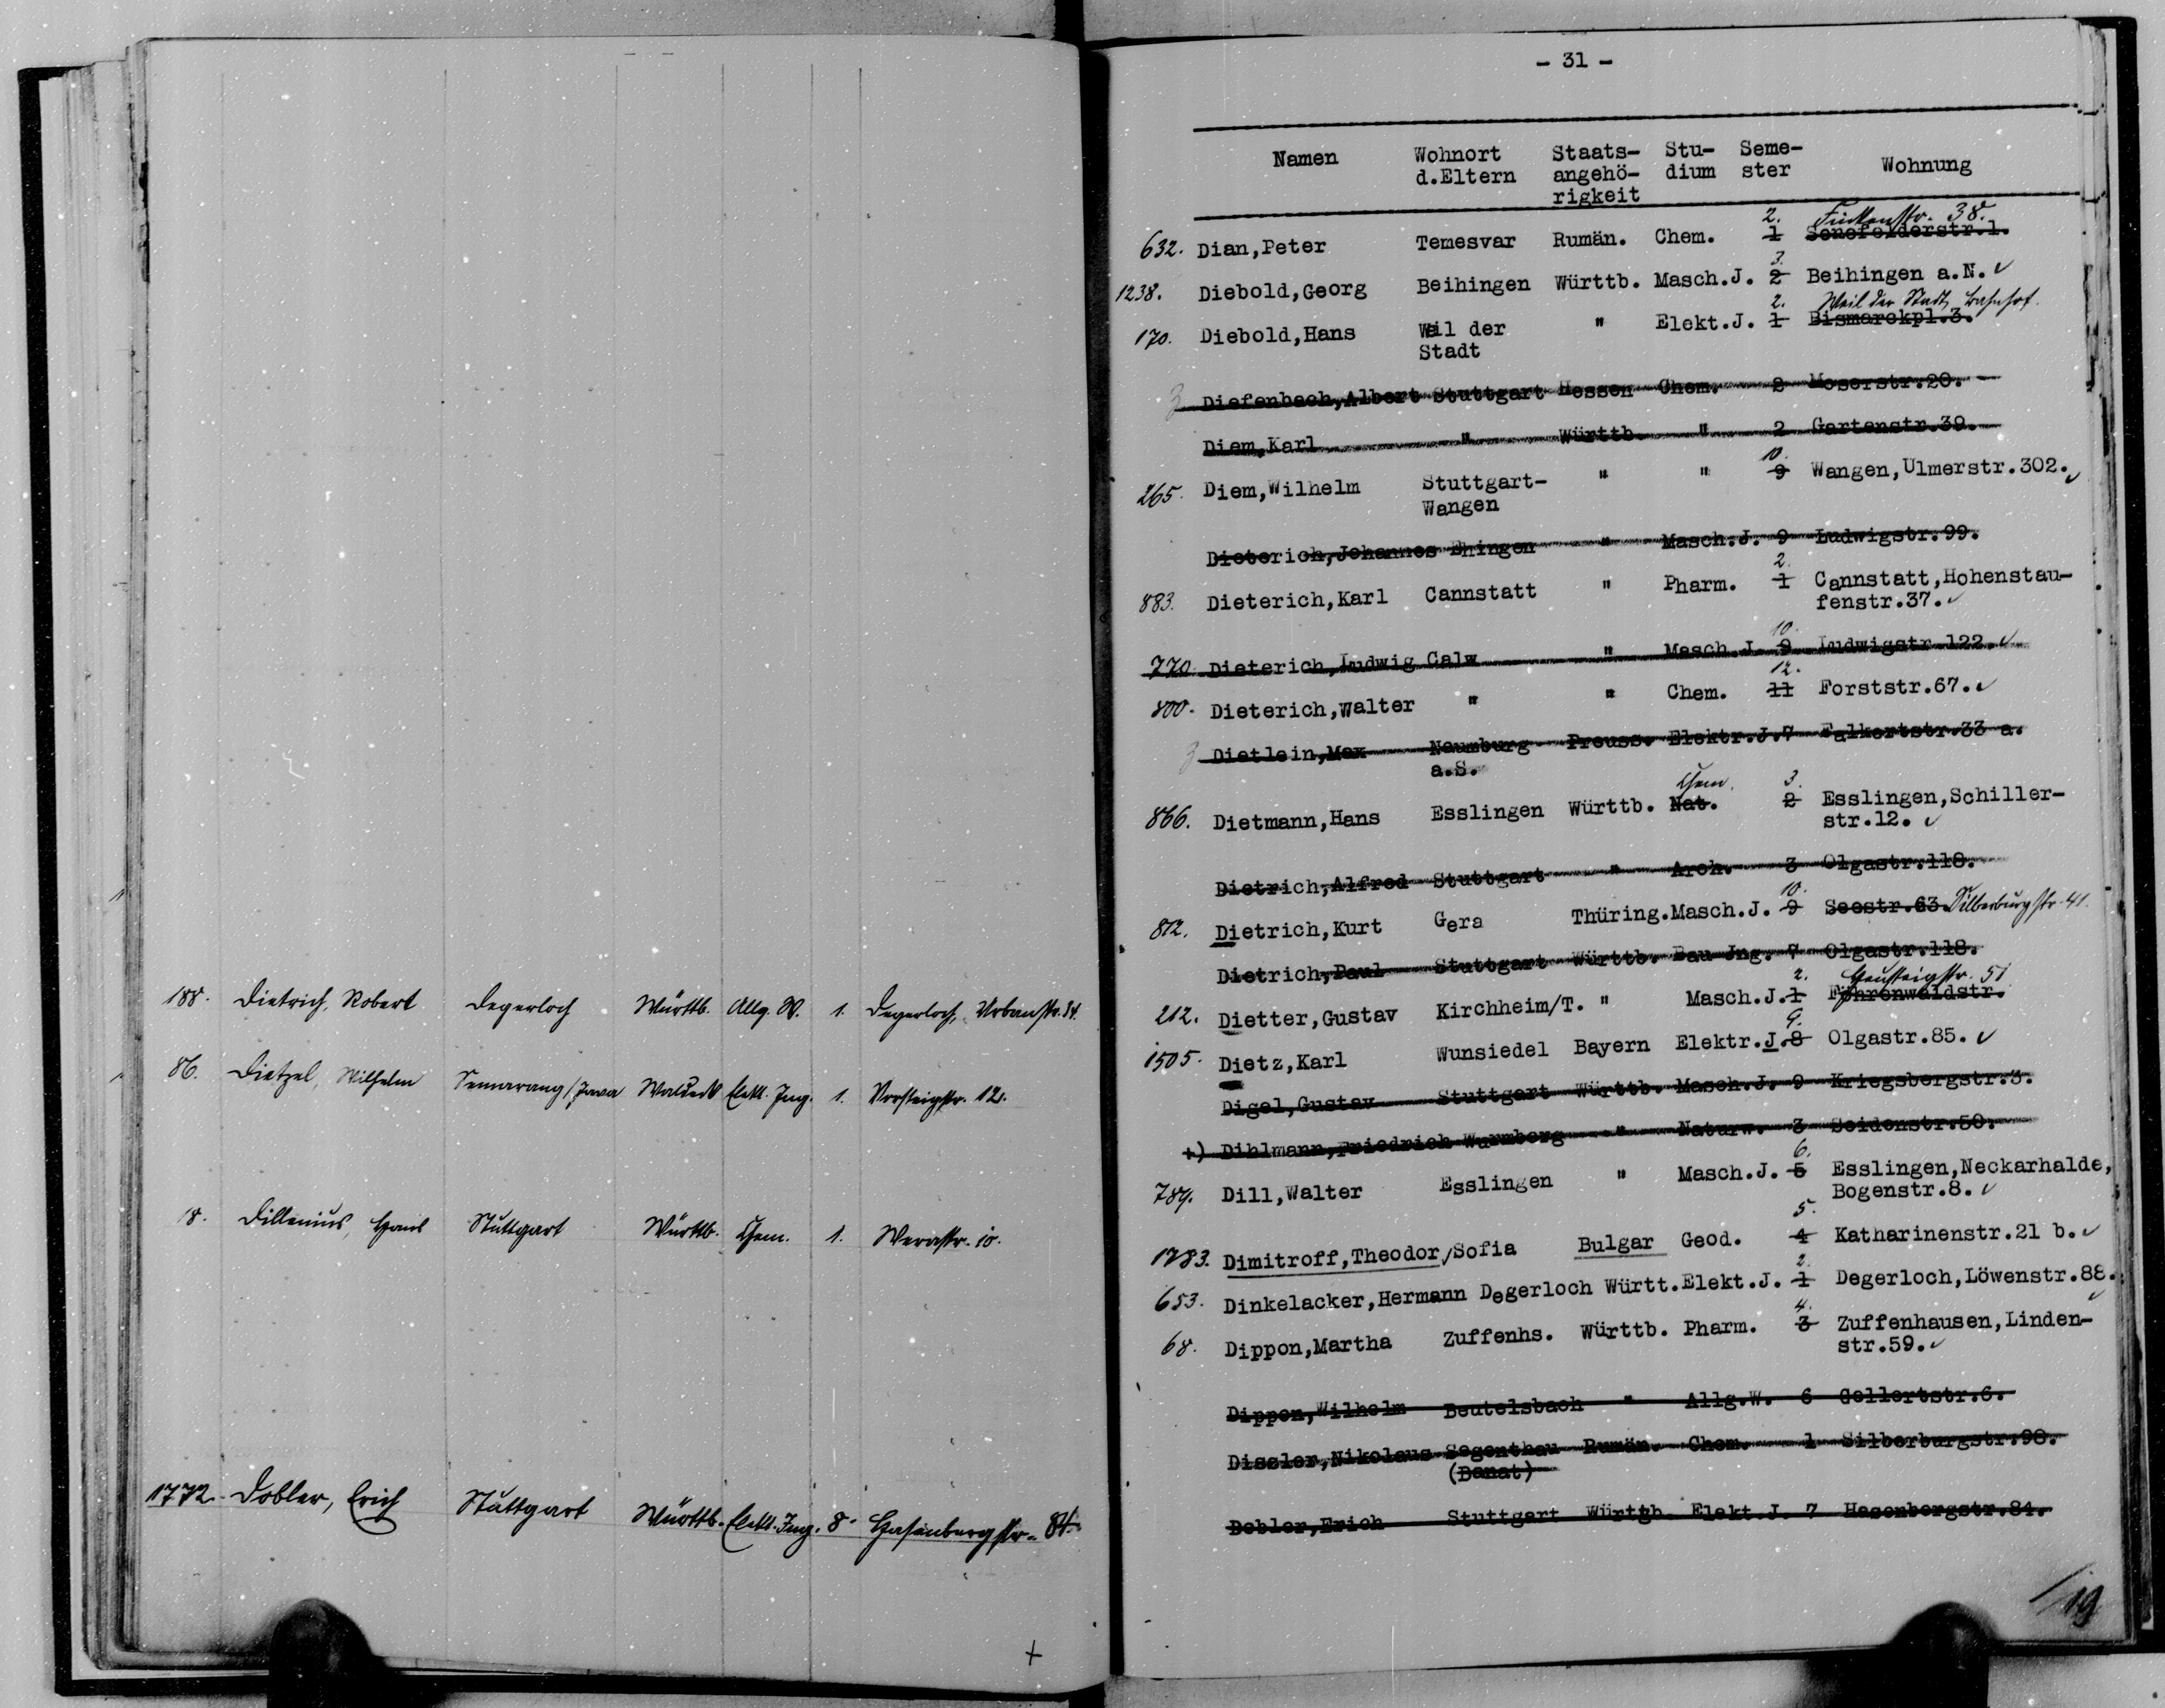 188. Dietrich, Robert Degerloch Württb. Allg. W. 1. Degerloch, Urbanstr. 34.
86. Dietzel, Wilhelm Semarang/Java Waldeck Elekt. Ing. 1. 12.
18. Dillenius, Hans Stuttgart Württb. Chem. 1. Werastr. 10.
1772. Dobler, Erich Stuttgart Württb. Elekt. Ing. 8. Hasenbergstr. 84.
+
- 31 -
Namen Wohnort Staats- Stu- Seme- Wohnung
d.Eltern angehö- dium ster
rigkeit
2. 38.
632. Dian,Peter Temesvar Rumän. Chem. 1 Senefelderstr.1.
3.
1238. Diebold,Georg Beihingen Württb. Masch.J. 2 Beihingen a.N. ✓
2. Weil der Stadt, Bahnhof.
170. Diebold,Hans Weil der " Elekt.J. 1 Bismarckpl.3.
Stadt
3 Diefenbach,Albert Stuttgart Hessen Chem. 2 Moserstr.20.
Diem,Karl " Württb. " 2 Gartenstr.39.
10.
265. Diem,Wilhelm Stuttgart- " " 9 Wangen,Ulmerstr.302. ✓
Wangen
Dieterich,Johannes Ehingen " Masch.J. 9 Ludwigstr.99.
2.
883. Dieterich,Karl Cannstatt " Pharm. 1 Cannstatt,Hohenstau-
fenstr.37. ✓
10.
770. Dieterich,Ludwig Calw " Masch.J. 9 Ludwigstr.122. ✓
12.
800. Dieterich,Walter " " Chem. 11 Forststr.67. ✓
3 Dietlein,Max Naumburg Preuss. Elektr.J.7 Falkertstr.33 a.
a.S.
Chem. 3.
866. Dietmann,Hans Esslingen Württb. Nat. 2 Esslingen,Schiller-
str.12. ✓
Dietrich,Alfred Stuttgart " Arch. 3 Olgastr.118.
10.
812. Dietrich,Kurt Gera Thüring.Masch.J. 9 Seestr.63. Silberburgstr. 41.
Dietrich,Paul Stuttgart Württb. Bau Jng. 7 Olgastr.118.
2. 51
212. Dietter,Gustav Kirchheim/T. " Masch.J.1 Föhrenwaldstr.
9.
1505. Dietz,Karl Wunsiedel Bayern Elektr.J.8 Olgastr.85. ✓
Digel,Gustav Stuttgart Württb. Masch.J. 9 Kriegsbergstr.3.
+) Dihlmann,Friedrich Wurmberg " Naturw. 3 Seidenstr.50.
6.
789. Dill,Walter Esslingen " Masch.J. 5 Esslingen,Neckarhalde,
Bogenstr.8. ✓
5.
1783. Dimitroff,Theodor/Sofia Bulgar Geod. 4 Katharinenstr.21 b. ✓
2.
653. Dinkelacker,Hermann Degerloch Württ.Elekt.J. 1 Degerloch,Löwenstr.88. ✓
4.
68. Dippon,Martha Zuffenhs. Württb. Pharm. 3 Zuffenhausen,Linden-
str.59. ✓
Dippon,Wilhelm Beutelsbach " Allg.W. 6 Gellertstr.6.
Dissler,Nikolaus Segenthau Rumän. Chem. 1 Silberburgstr.98.
(Banat)
Dobler,Erich Stuttgart Württb. Elekt.J. 7 Hasenbergstr.84.
/19